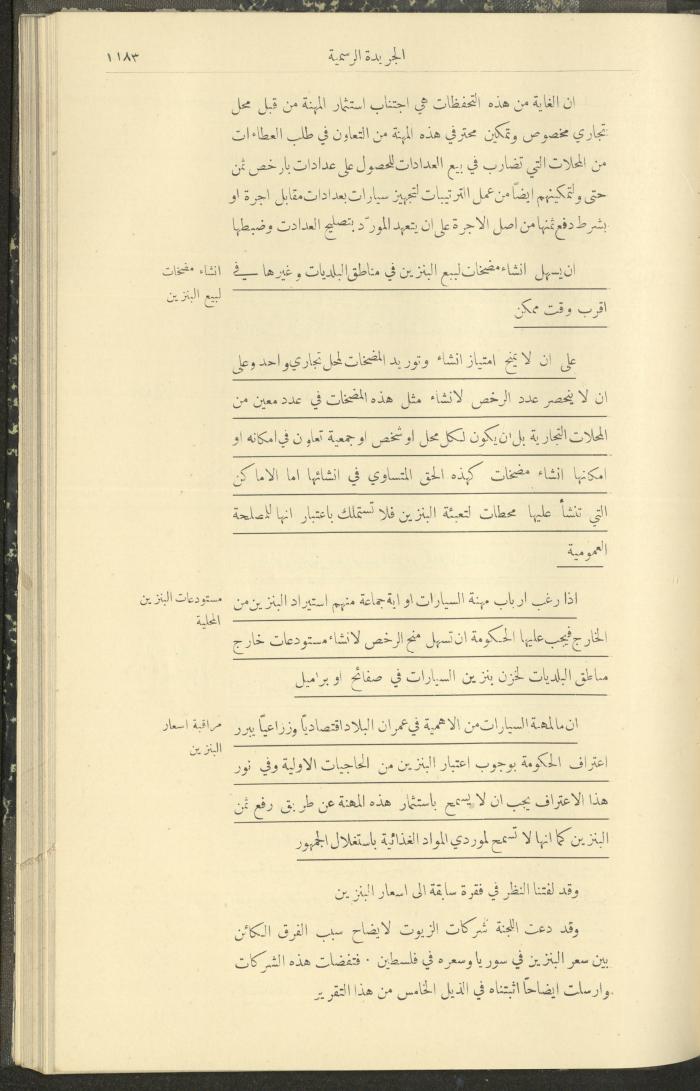 الجريدة الرسمية
١١٨٣
ان الغاية من هذه التحفظات هي اجتناب استثمار المهنة من قبل محل
تجاري مخصوص وتمكين محترفي هذه المهنة من التعاون في طلب العطاءات
من المحلات التي تضارب في بيع العدادات للحصول على عدادات بارخص ثمن
حتى ولتمكينهم ايضاً من عمل الترتيبات لتجهيز سيارات بعدادات مقابل اجرة او
بشرط دفع ثمنها من اصل الاجرة على ان يتعهد المورّد بتصليح العدادت وضبطها
انشاء مضخات
لبيع البنزين
ان يسهل انشاء مضخات لبيع البنزين في مناطق البلديات وغيرها في
اقرب وقت ممكن
على ان لا يمنح امتياز انشاء وتوريد المضخات لمحل تجاري واحد وعلى
ان لا ينحصر عدد الرخص لانشاء مثل هذه المضخات في عدد معين من
المحلات التجارية بل ان يكون لكل محل او شخص او جمعية تعاون في امكانه او
امكانها انشاء مضخات كهذه الحق المتساوي في انشائها اما الاماكن
التي تنشأ عليها محطات لتعبئة البنزين فلا تستملك باعتبار انها للمصلحة
العمومية
مستودعات البنزين
المحلية
اذا رغب ارباب مهنة السيارات او اية جماعة منهم استيراد البنزين من
الخارج فيجب عليها الحكومة ان تسهل منح الرخص لانشاء مستودعات خارج
مناطق البلديات لخزن بنزين السيارات في صفائح او براميل
مراقبة اسعار
البنزين
ان ما لمهنة السيارات من الاهمية في عمران البلاد اقتصادياً وزراعياً يبرر
اعتراف الحكومة بوجوب اعتبار البنزين من الحاجيات الاولية وفي نور
هذا الاعتراف يجب ان لا يسمح باستثمار هذه المهنة عن طريق رفع ثمن
البنزين كما انها لا تسمح لموردي المواد الغذائية باستغلال الجمهور
وقد لفتنا النظر في فقرة سابقة الى اسعار البنزين
وقد دعت اللجنة شركات الزيوت لايضاح سبب الفرق الكائن
بين سعر البنزين في سوريا وسعره في فلسطين . فتفضلت هذه الشركات
وارسلت ايضاحاً اثبتناه في الذيل الخامس من هذا التقرير